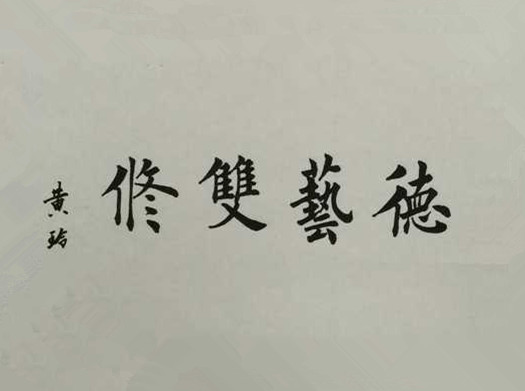 德藝雙修
黄玲